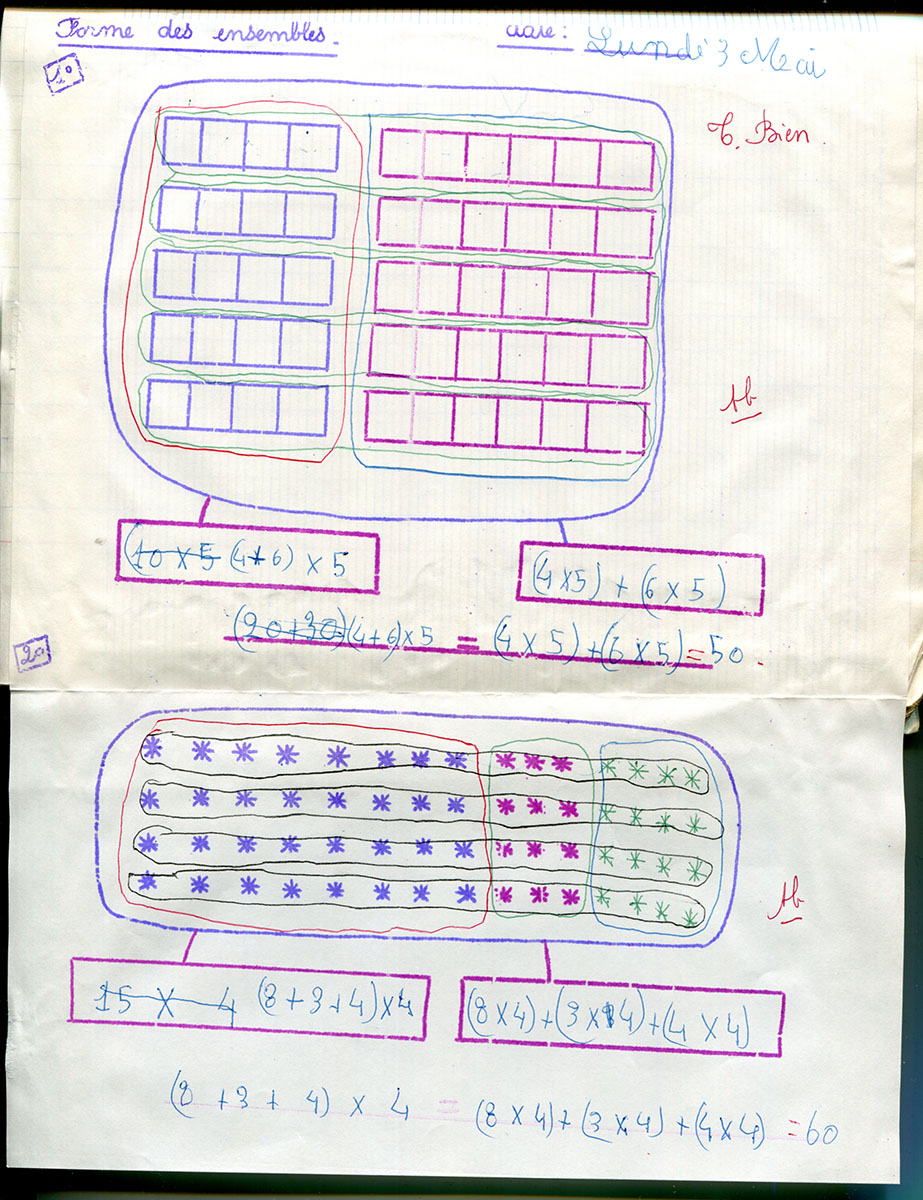 Forme des ensembles. date: Lundi 3 Mai
1°
T. Bien
tb
(10 x 5 (4+6) x 5
(4 x 5) + (6 x 5)
(20+30)(4+6)x5 = (4 x 5)+(6 x 5)=50.
2°
tb
15 x 4 (8+3+4)x4
(8x4)+(3x4)+(4x4)
(8 + 3 + 4) x 4 = (8 x 4)+(3 x 4)+(4x4) =60